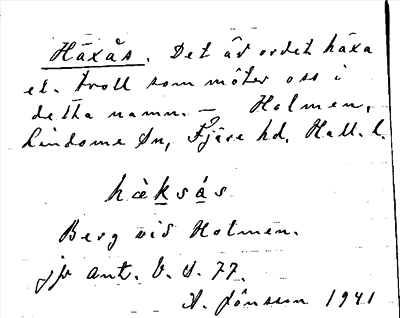 Häxås. Det är ordet häxa
el. troll som möter oss i
detta namn. – Holmen,
Lindome sn, Fjäre hd, Hall. l.
hàksás
Berg vid Holmen.
jfr ant. b. s. 77.
A. Jönsson 1941